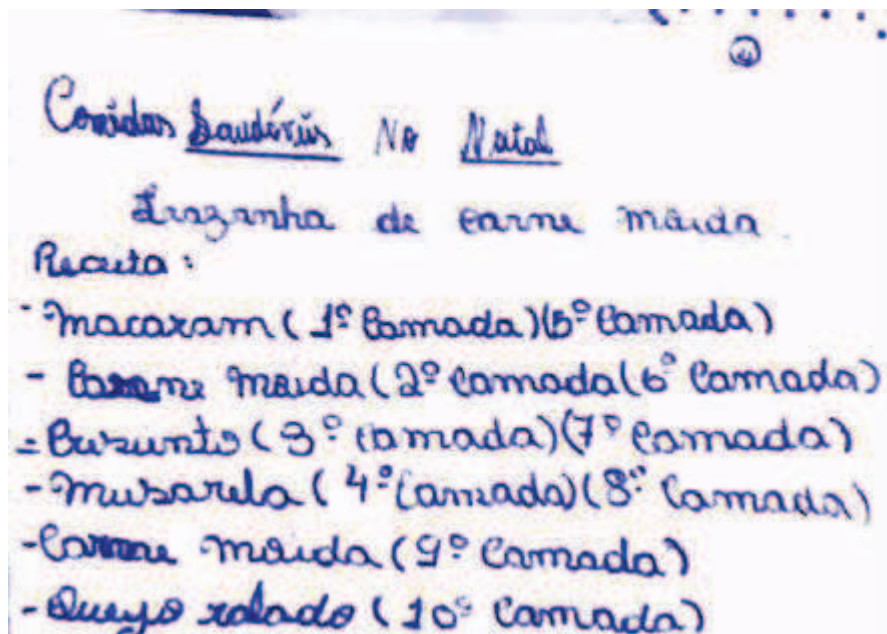 4
Comidas No Natal
Lazanha de carne moida
Receita:
- macaram (1º Camada)(5º Camada)
- Carne moida (2º Camada(6º Camada)
= Prezunto (3º Camada)(7º Camada)
- musarela (4º Camada)(8º Camada)
- Carne moida (9º Camada)
- Queyo ralado (10º Camada)